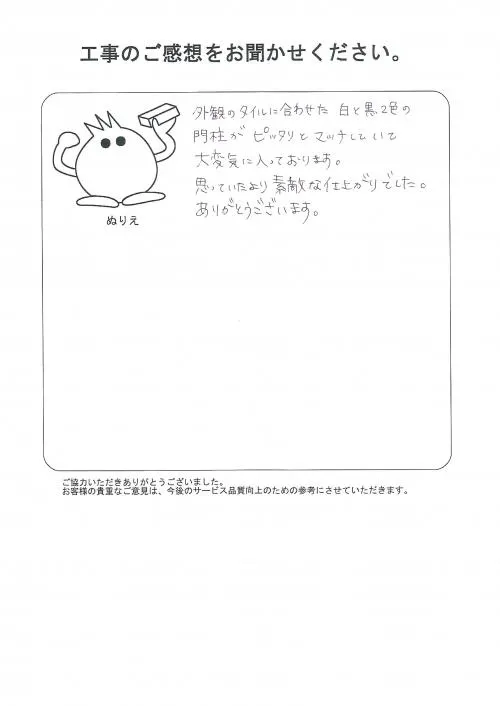 工事のご感想をお聞かせください。
外観のタイルに合わせた 白と黒2色の
門柱が ピッタリとマッチしていて
大変気に入っております。
思っていたより素敵な仕上がりでした。
ありがとうございます。
ぬりえ
ご協力いただきありがとうございました。
お客様の貴重なご意見は、今後のサービス品質向上のための参考にさせていただきます。